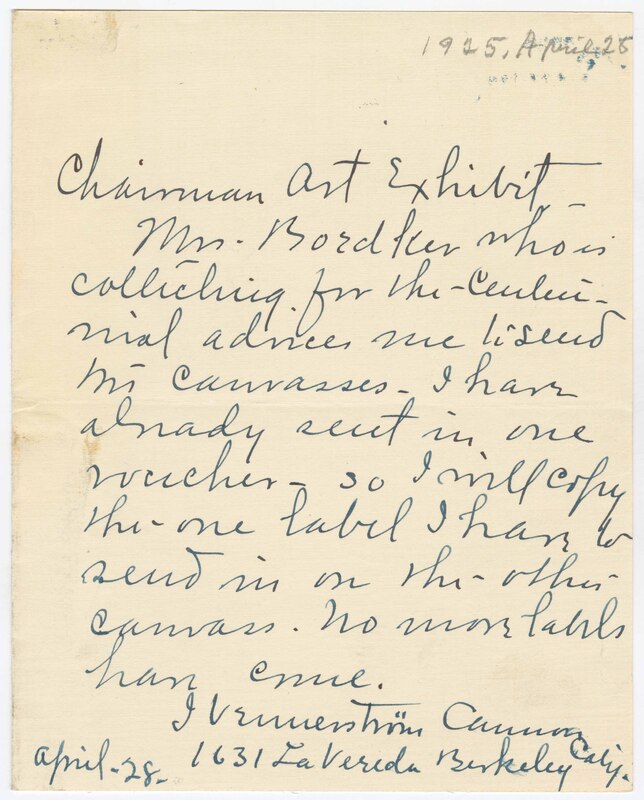 1925, April 28
Chairman Art Exhibit -
Mrs. Bordker who is
collecting for the Centen-
nial advices me to send
two canvasses - I have
already sent in one
voucher - so I will copy
the one label I have to
send in on the other
canvass. No more labels
have come.
J Vennerström Cannon
1631 La Vereda Berkeley Calif.
April - 28 -